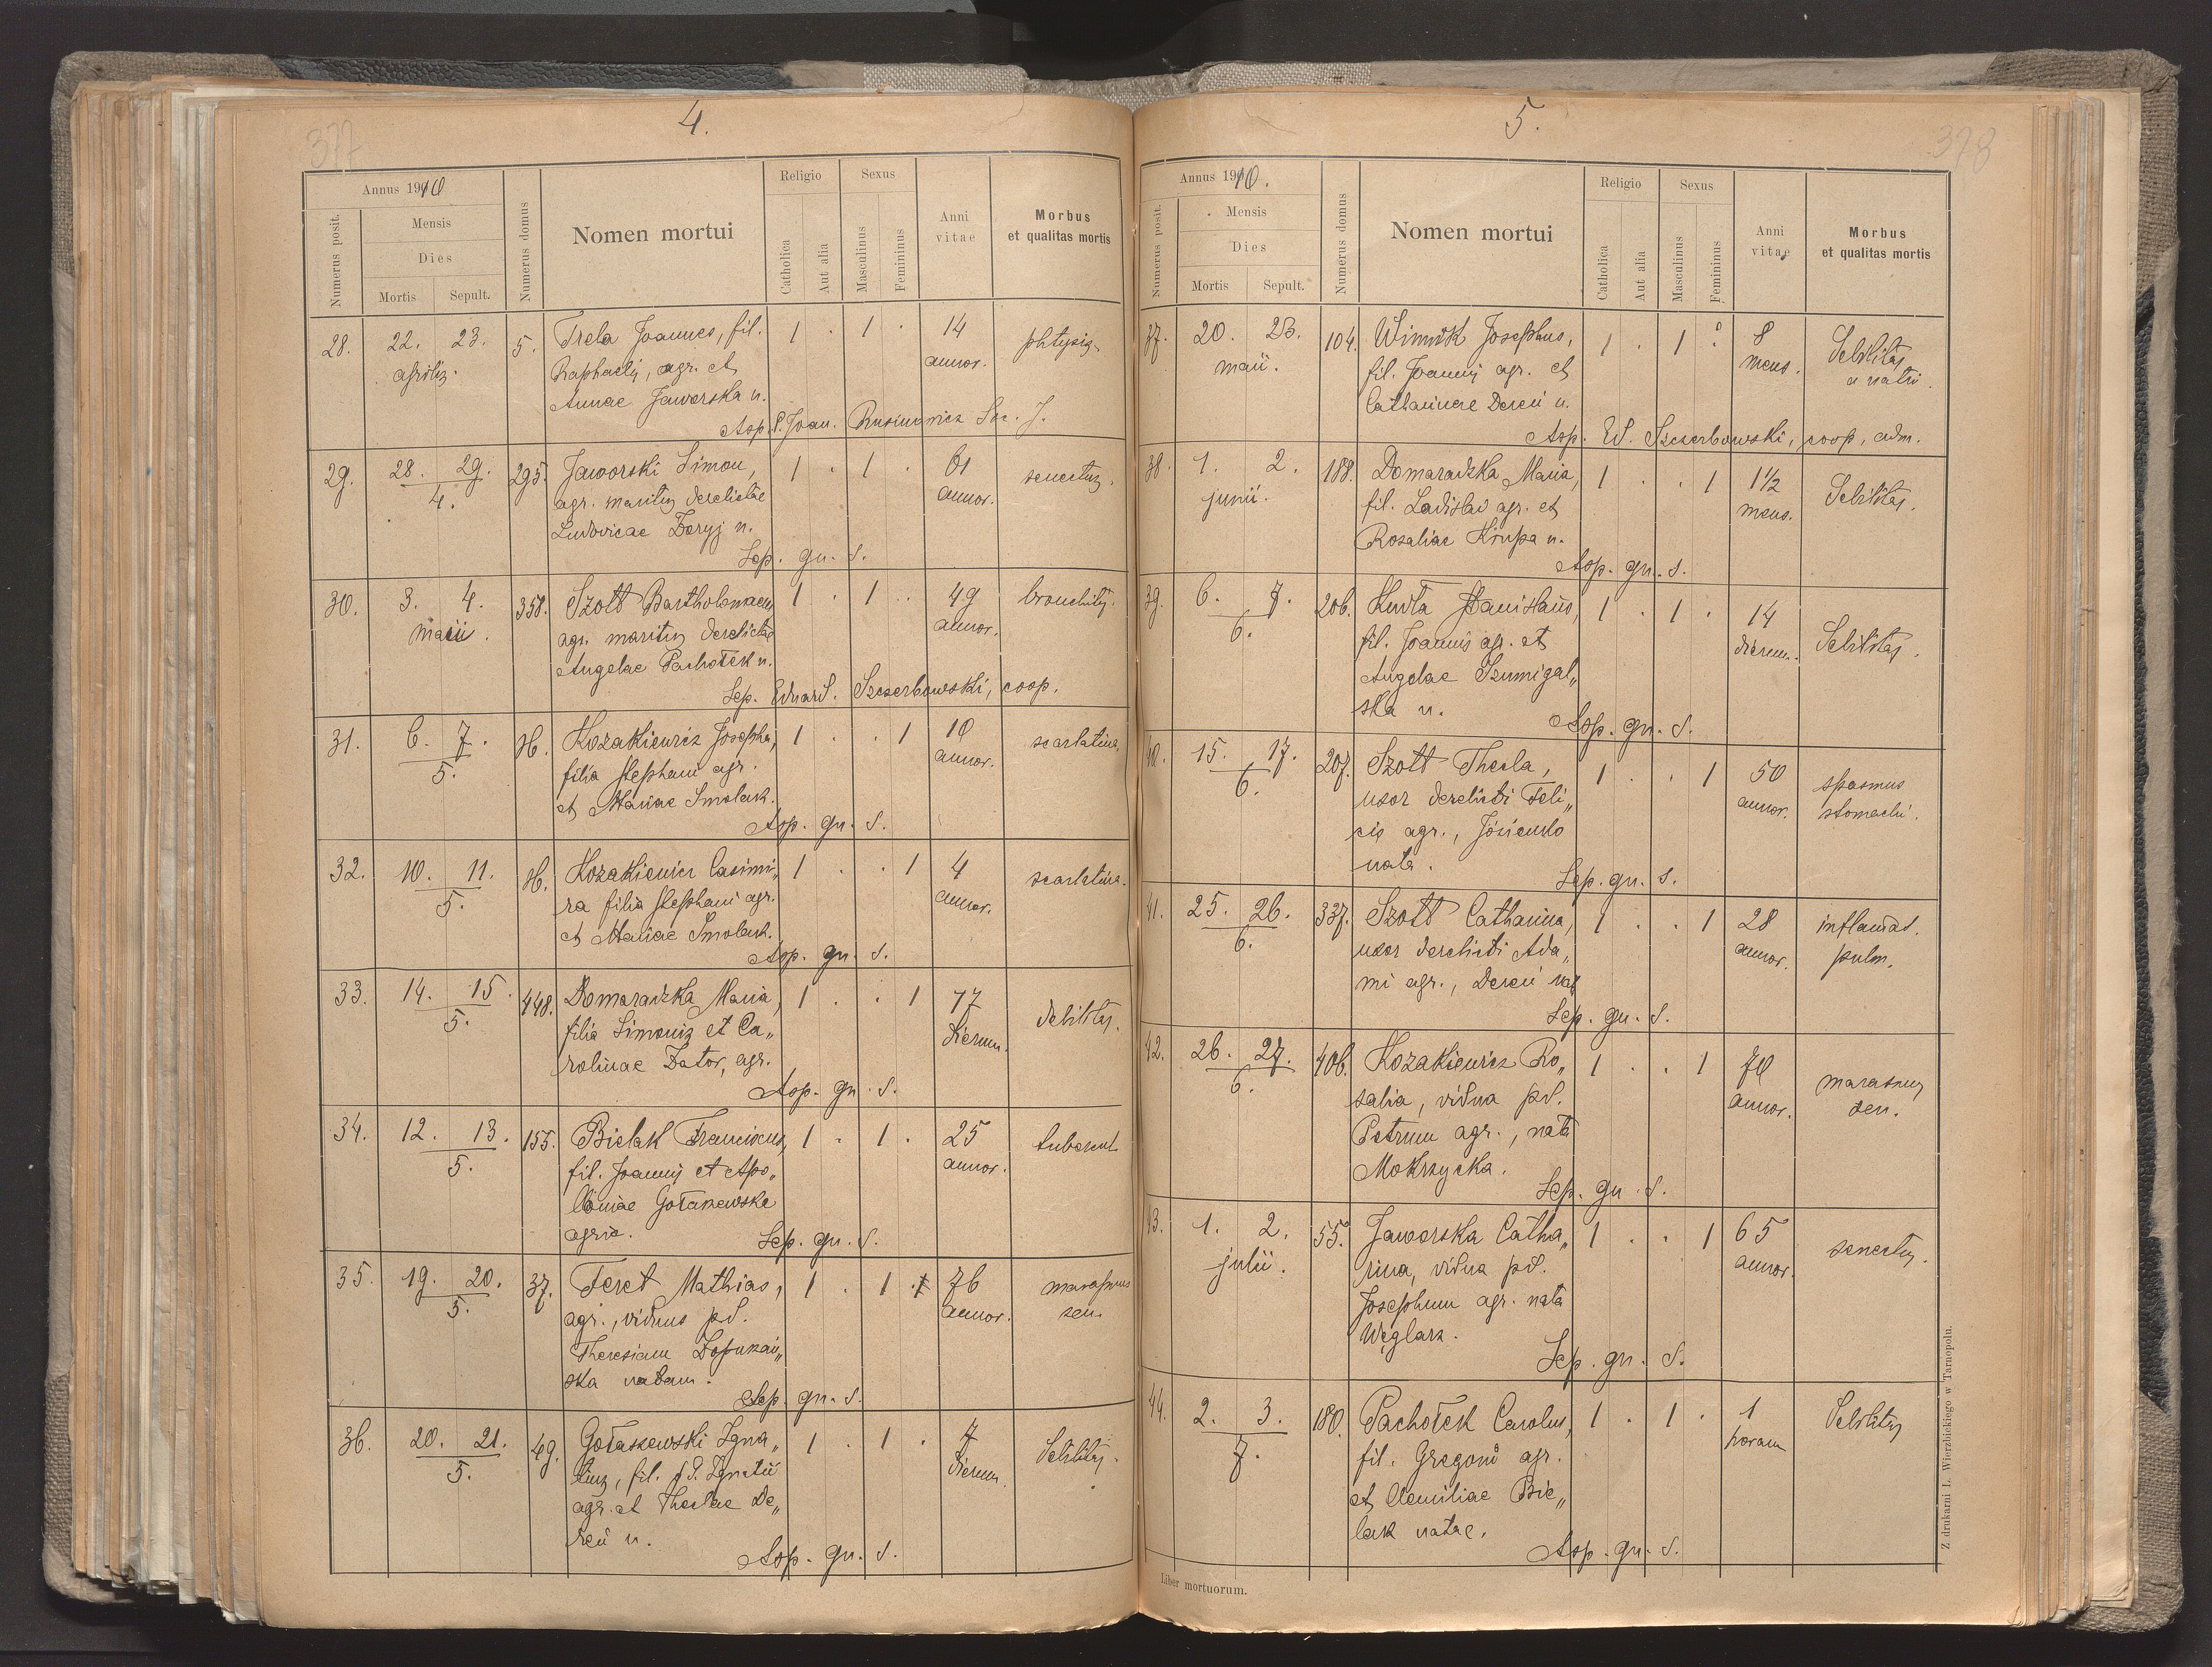 377
4.
Annus 1910
Numerus posit.
Mensis
Dies
Mortis
Sepult.
Numerus domus
Nomen mortui
Religio
Catholica
Aut alia
Sexus
Masculinus
Femininus
Anni
vitae
Morbus
et qualitas mortis
28. 22. 23. 5. Trela Joannes, fil. 1 . 1 . 14 phtysis
aprilis. Raphaelis, agr. et annor.
Annae Jaworska n.
Asp. P. Joan. Rusinowicz Soc. J.
29. 28. 29. 295. Jaworski Simon, 1 . 1 . 61 senectus.
4. agr. maritus derelictae annor.
Ludovicae Boryj n.
Sep. qu. s.
30. 3. 4. 358. Szott Bartholomaeus 1 . 1 . 49 bronchitis.
maii. agr. maritus derelictae annor.
Angelae Pachołek n.
Sep. Eduard. Szczerbowski, coop.
31. 6. 7. H. Kozakiewicz Josepha, 1 . . 1 10 scarlatina.
5. filia Stephani agr. annor.
et Mariae Smolak.
Asp. qu. s.
32. 10. 11. H. Kozakiewicz Casimi„ 1 . . 1 4 scarlatina.
5. ra filia Stephani agr. annor.
et Mariae Smolak.
Asp. qu. s.
33. 14. 15. 448. Domaradzka Maria, 1 . . 1 17 debilitas.
5. filia Simonis et Ca„ dierum.
rolinae Dator, agr.
Asp. qu. s.
34. 12. 13. 155. Bielak Franciscus, 1 . 1 . 25 tubercul.
5. fil. Joannis et Apo„ annor.
loniae Gołaszewska
agric.
Sep. qu. s.
35. 19. 20. 37. Feret Mathias, 1 . 1 . 76 marasmus
5. agr., viduus pd. annor. sen.
Theresiam Łopuzań„
ska natam.
Sep. qu. s.
36. 20. 21. 49. Gołaszewski Igna„ 1 . 1 . 7 Debilitas.
5. tius, fil. Ignatii dierum.
agr. et Theclae De„
reń n.
Asp. qu. s.
378
5.
Annus 1910.
Numerus posit.
Mensis
Dies
Mortis
Sepult.
Numerus domus
Nomen mortui
Religio
Catholica
Aut alia
Sexus
Masculinus
Femininus
Anni
vitae
Morbus
et qualitas mortis
37. 20. 23. 104. Winnik Josephus, 1 . 1 . 8 Debilitas
maii. fil. Joannis agr. et mens. a nativ.
Catharinae Dereń n.
Asp. Ed. Szczerbowski, coop. adm.
38. 1. 2. 188. Domaradzka Maria, 1 . . 1 1½ Debilitas.
junii. fil. Ladislai agr. et mens.
Rosaliae Krupa n.
Asp. qu. s.
39. 6. 7. 206. Kudła Stanislaus, 1 . 1 . 14 Debilitas.
6. fil. Joannis agr. et dierum.
Angelae Szumigal„
ska n.
Asp. qu. s.
40. 15. 17. 207. Szott Thecla, 1 . . 1 50 spasmus
6. uxor derelicti Feli„ annor. stomachi.
cis agr.,
nata.
Sep. qu. s.
41. 25. 26. 337. Szott Catharina, 1 . . 1 28 inflamat.
6. uxor derelicti Ada„ annor. pulm.
mi agr., Dereń nat
Sep. qu. s.
42. 26. 27. 406. Kozakiewicz Ro„ 1 . . 1 70 marasmus
6. salia, vidua pd. annor. sen.
Petrum agr., nata
Mokrzycka.
Sep. qu. s.
43. 1. 2. 55. Jaworska Catha„ 1 . . 1 65 senectus.
julii. rina, vidua pd. annor.
Josephum agr. nata
Węglarz.
Sep. qu. s.
44. 2. 3. 180. Pachołek Carolus, 1 . 1 . 1 Debilitas
7. fil. Gregorii agr. horam
et Aemiliae Bie„
lak natae.
Asp. qu. s.
Liber mortuorum.
Z drukarni I. Wierzbickiego w Tarnopolu.